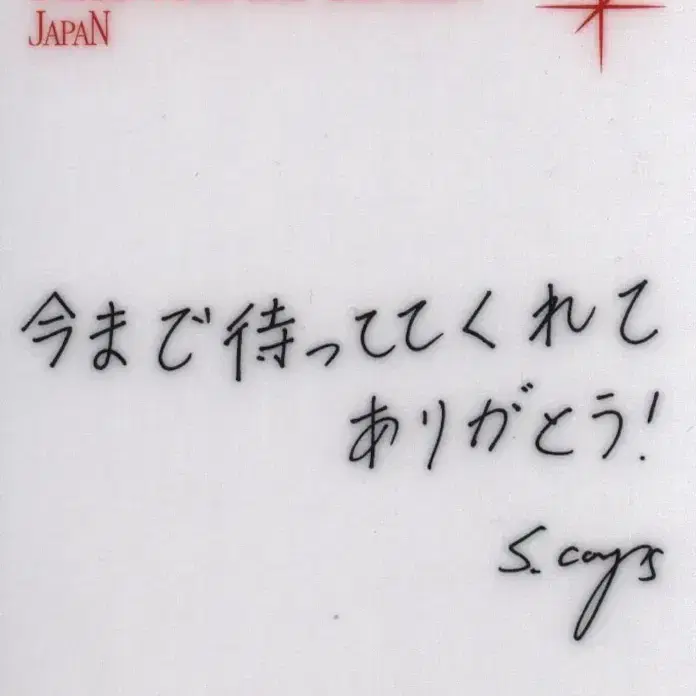 JAPAN
今まで待っててくれて
ありがとう!
S. coups